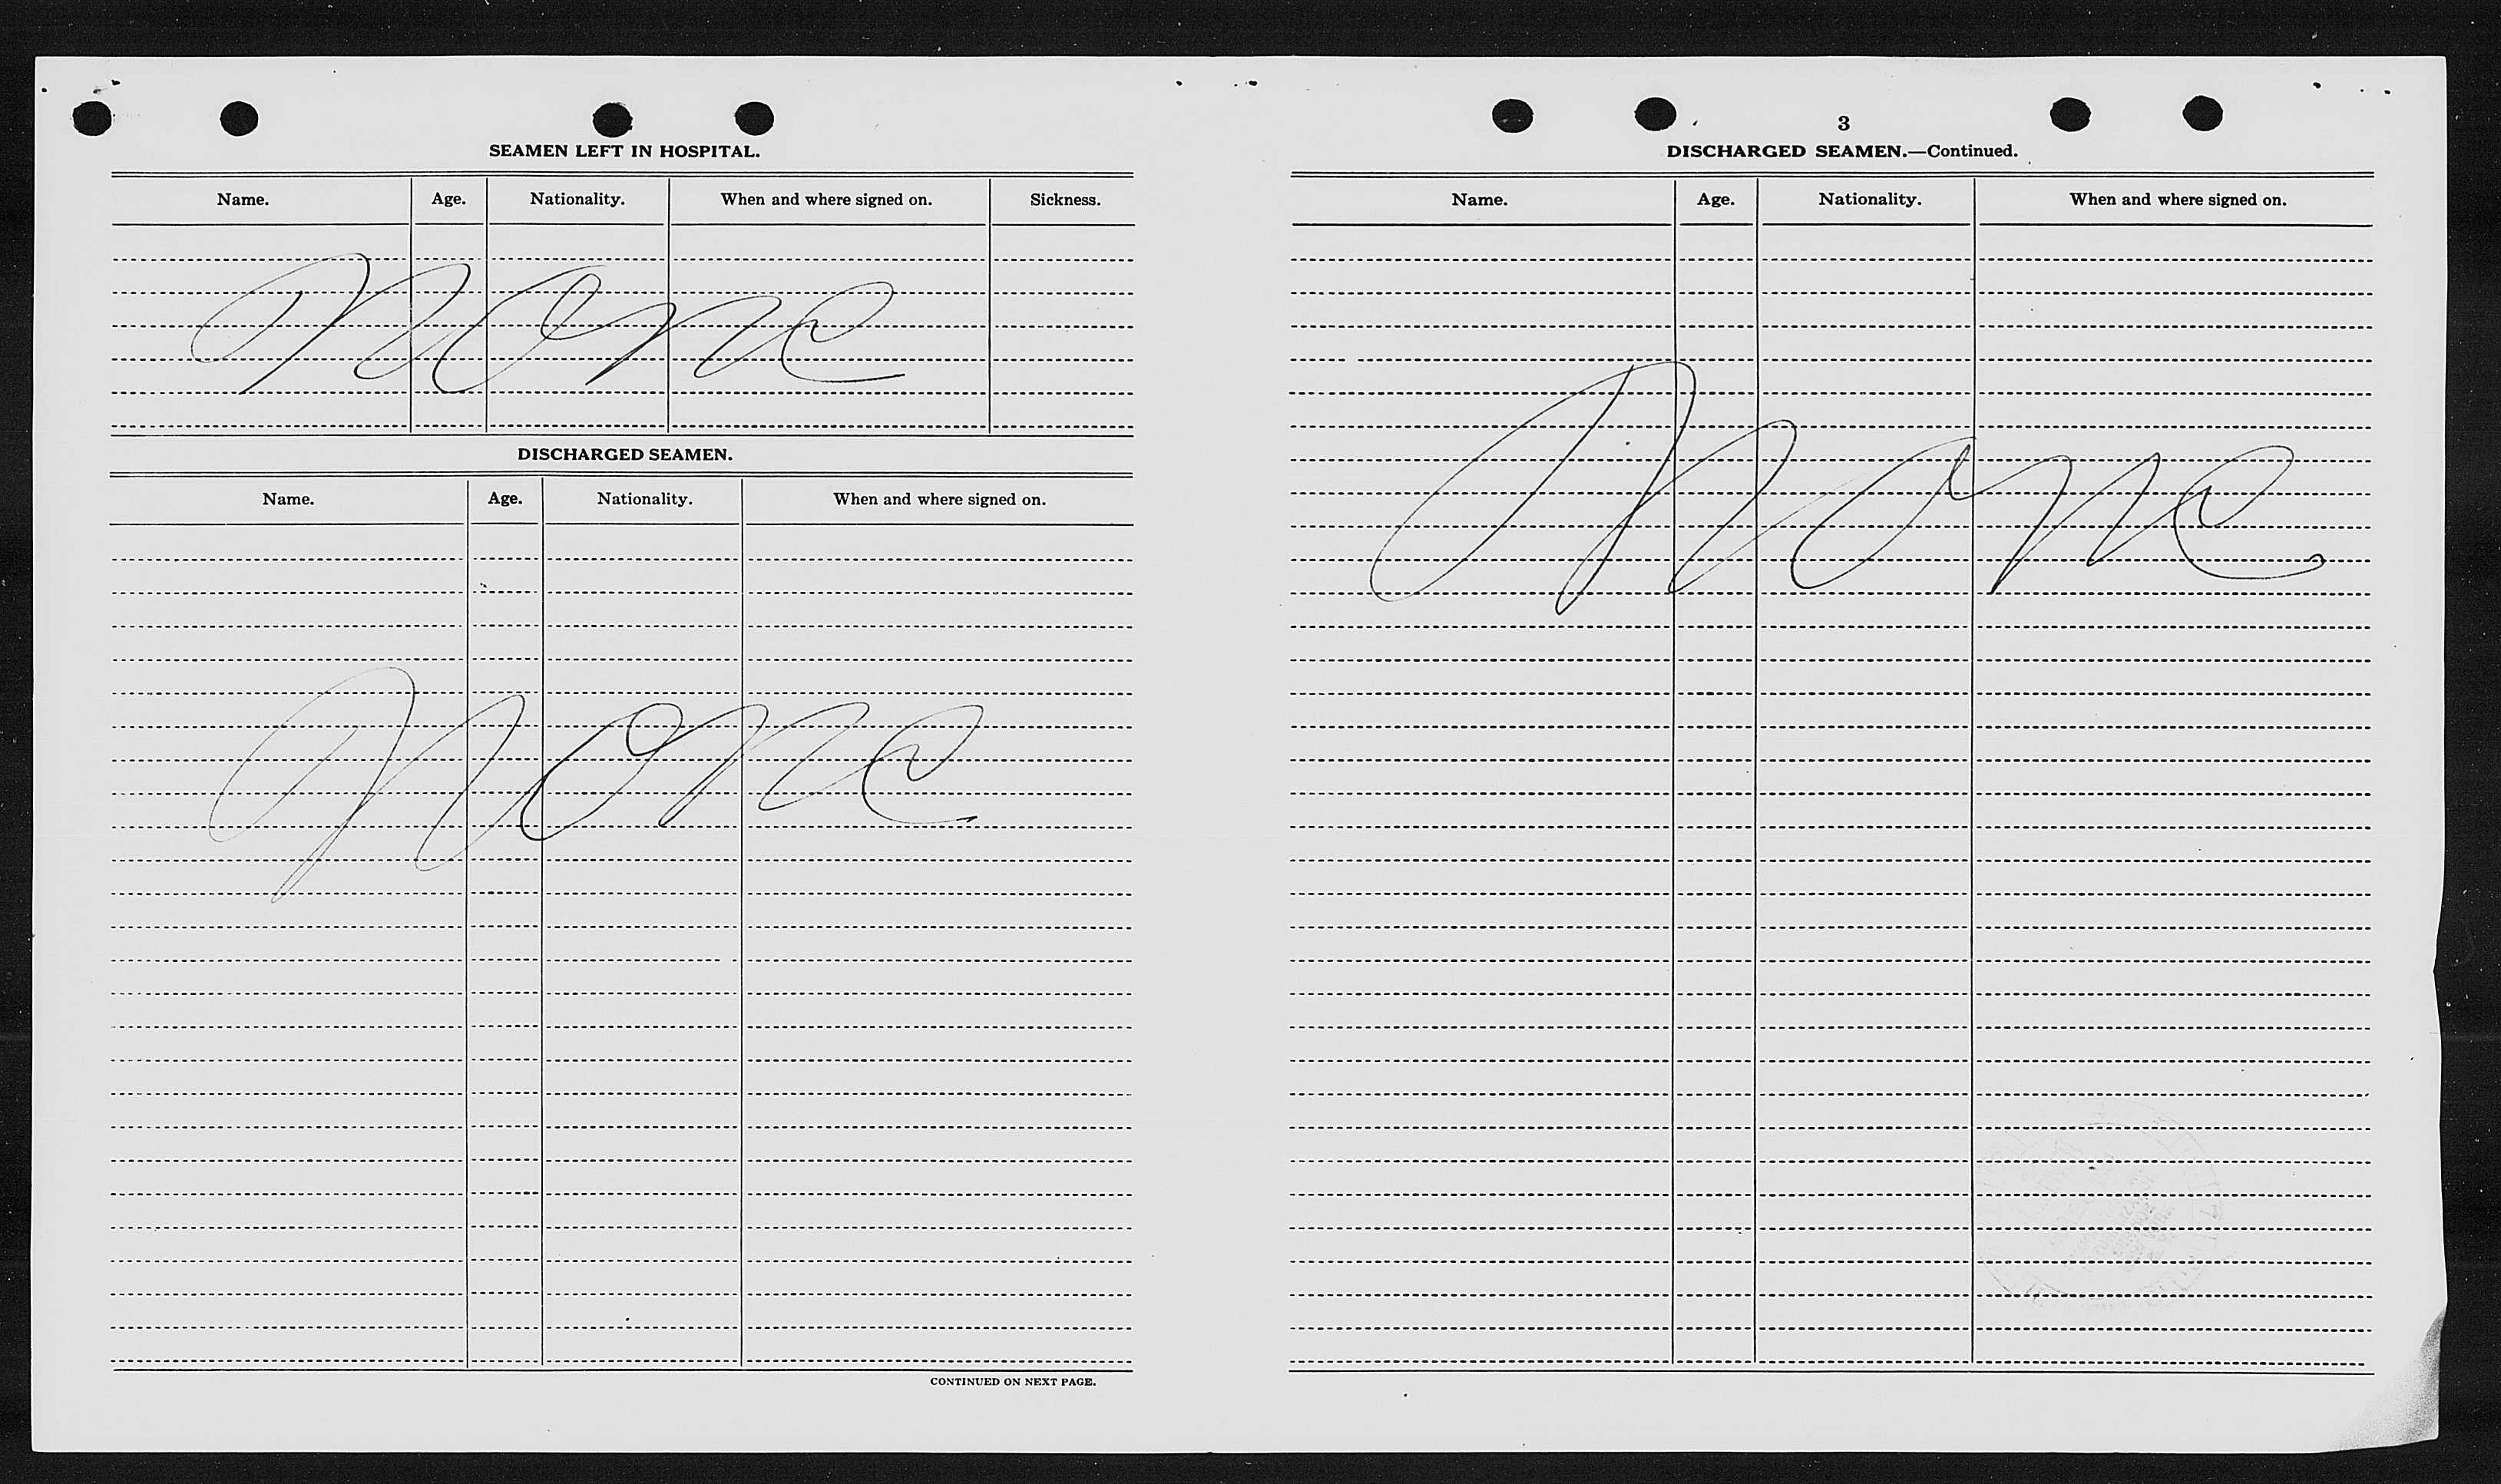 SEAMEN LEFT IN HOSPITAL.
Name. Age. Nationality. When and where signed on. Sickness.
None
DISCHARGED SEAMEN.
Name. Age. Nationality. When and where signed on.
None
CONTINUED ON NEXT PAGE.
3
DISCHARGED SEAMEN.—Continued.
Name. Age. Nationality. When and where signed on.
None